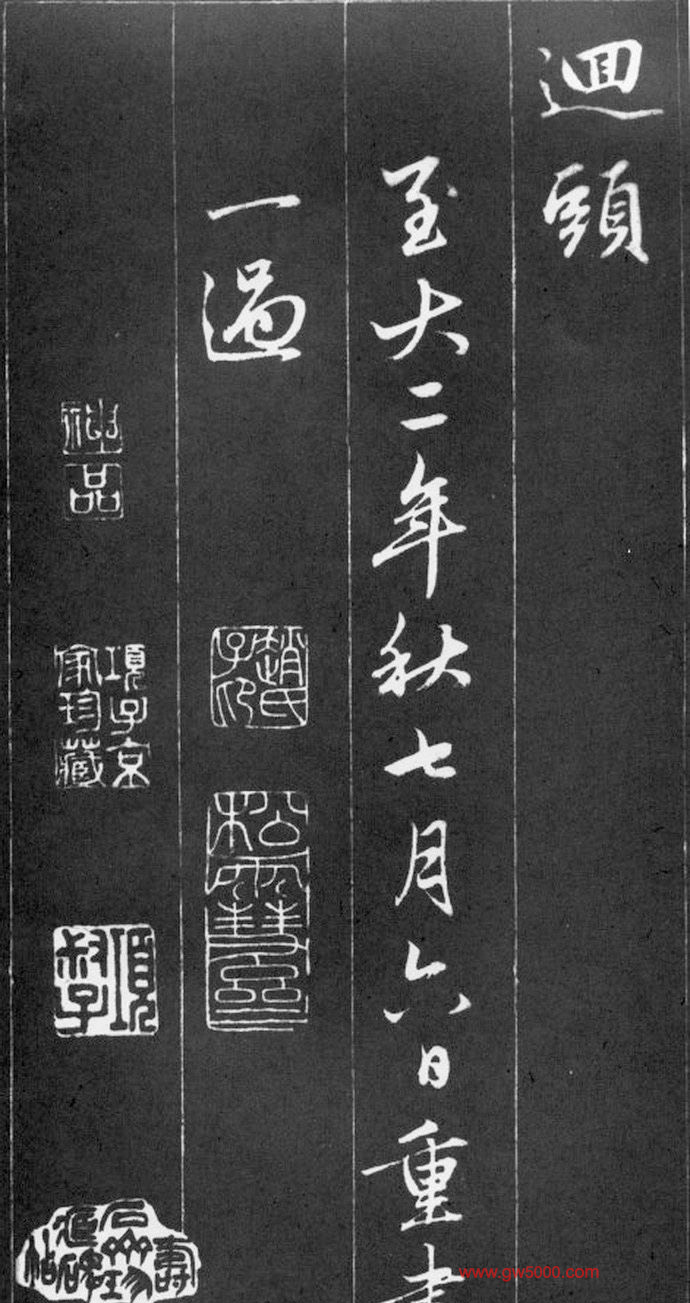 迴頭
至大二年秋七月六日重書
一過
趙氏子印
松雪齋
神品
項子京家珍藏
項叔子
www.gw5000.com